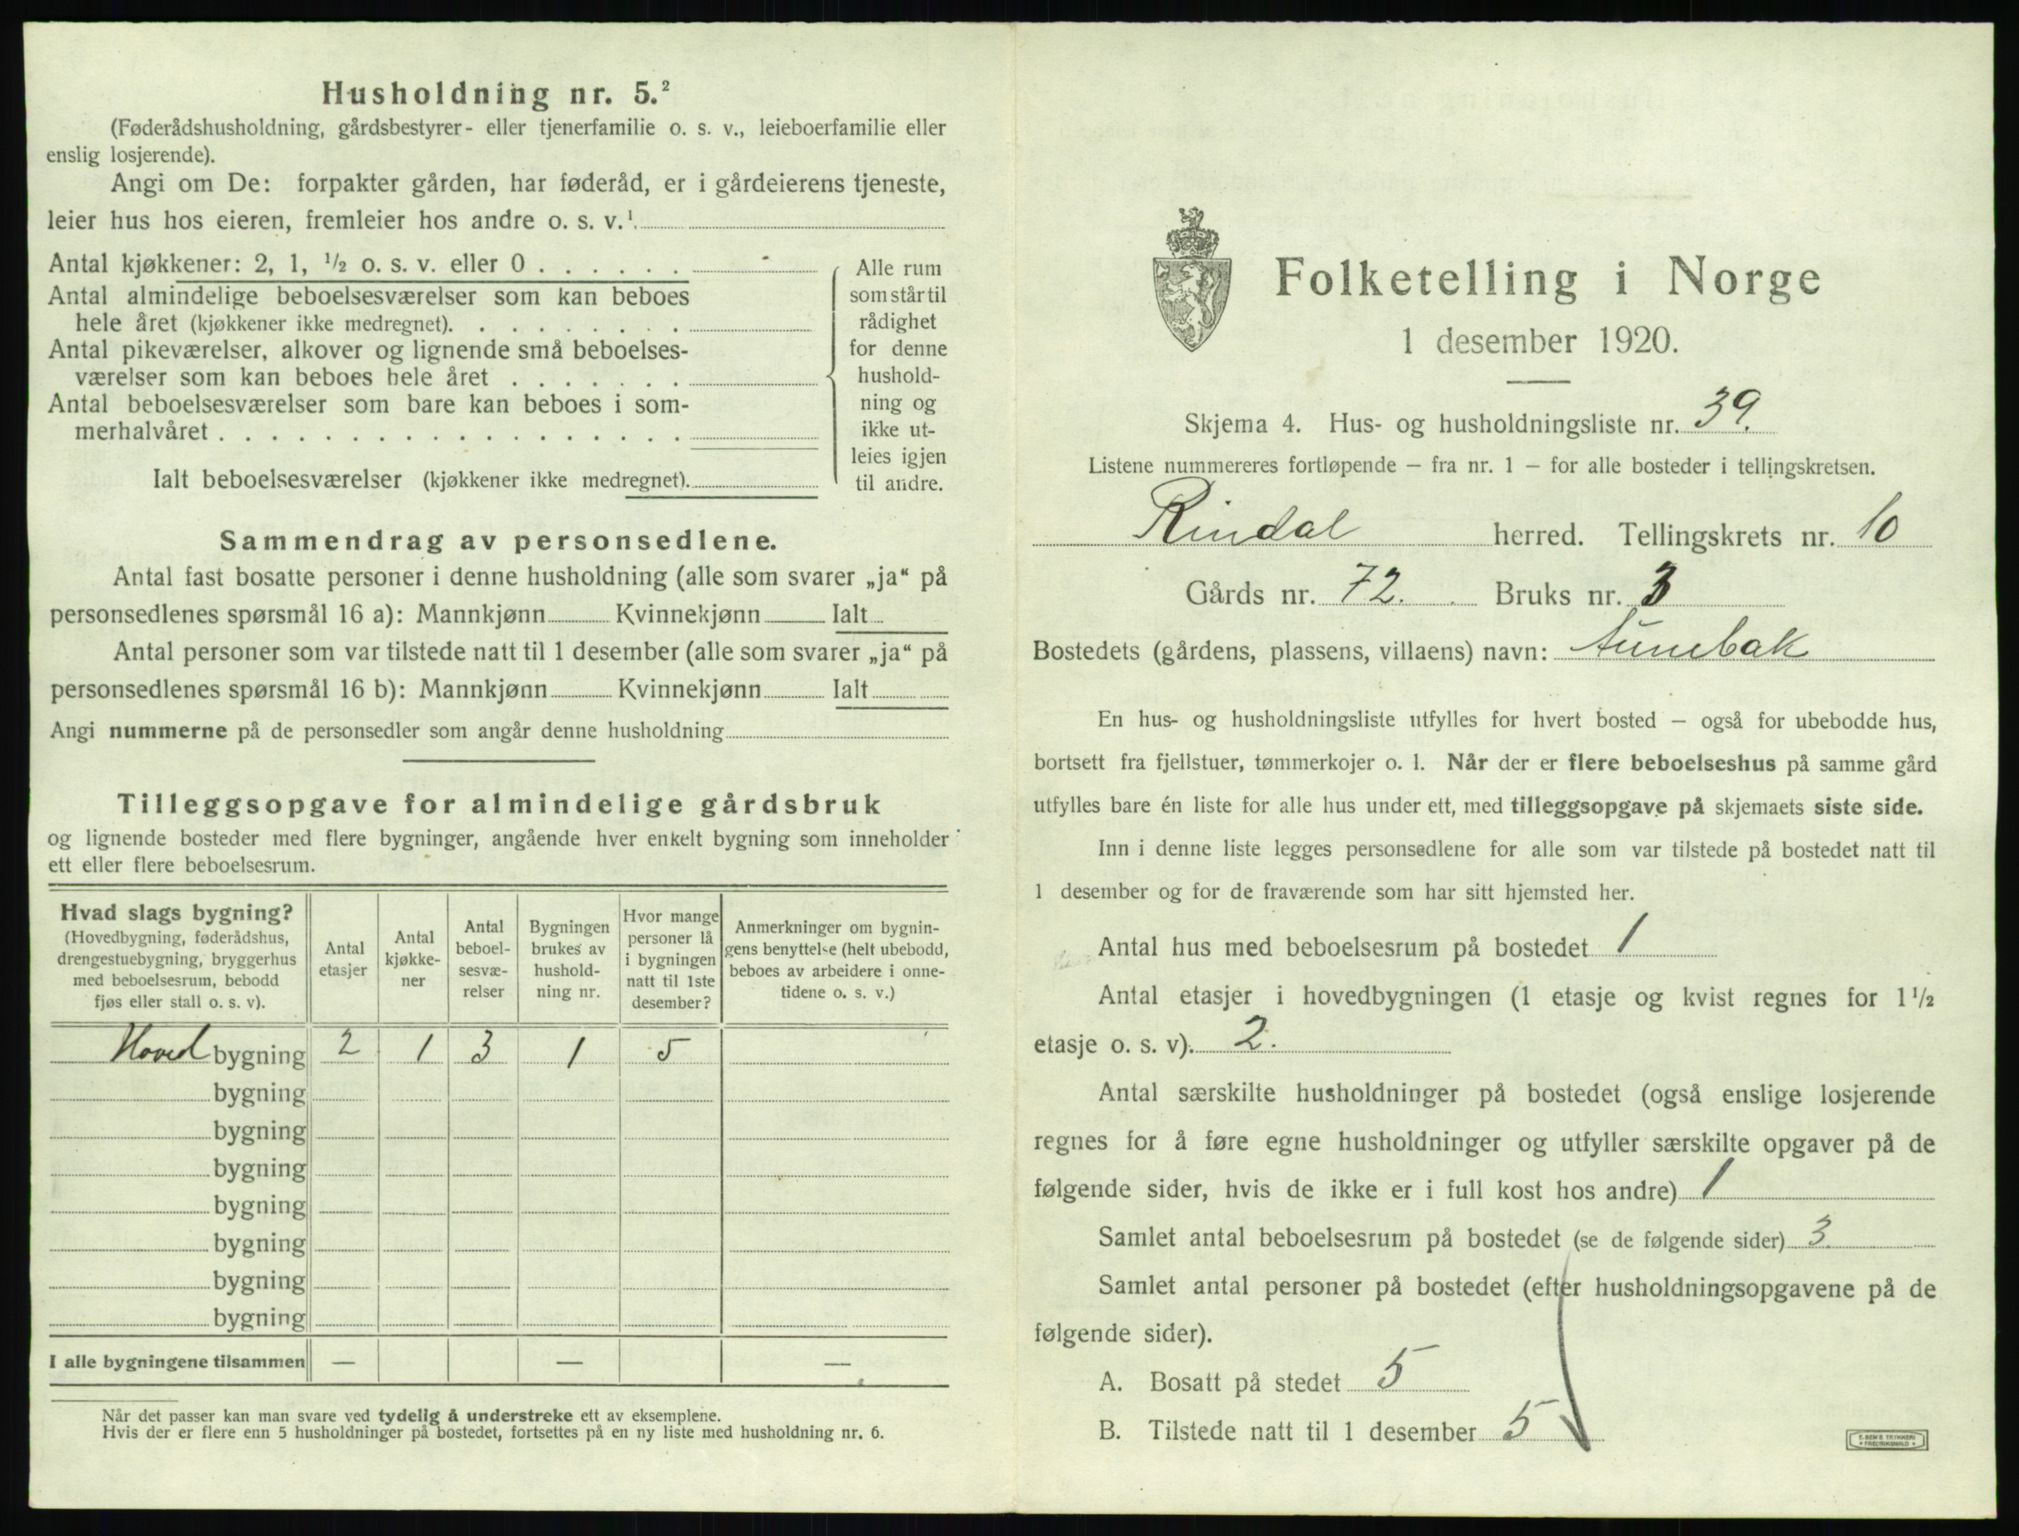 Husholdning nr. 5.²
(Føderådshusholdning, gårdsbestyrer- eller tjenerfamilie o. s. v., leieboerfamilie eller
enslig losjerende).
Angi om De: forpakter gården, har føderåd, er i gårdeierens tjeneste,
leier hus hos eieren, fremleier hos andre o. s. v.¹
Antal kjøkkener: 2, 1, ½ o. s. v. eller 0 . . . . . .
Antal almindelige beboelsesværelser som kan beboes
hele året (kjøkkener ikke medregnet). . . . . . . . .
Antal pikeværelser, alkover og lignende små beboelses-
værelser som kan beboes hele året . . . . . . .
Antal beboelsesværelser som bare kan beboes i som-
merhalvåret . . . . . . . . . . . . . . . . . .
Ialt beboelsesværelser (kjøkkener ikke medregnet).
Alle rum
som står til
rådighet
for denne
hushold-
ning og
ikke ut-
leies igjen
til andre.
Sammendrag av personsedlene.
Antal fast bosatte personer i denne husholdning (alle som svarer „ja“ på
personsedlenes spørsmål 16 a): Mannkjønn Kvinnekjønn Ialt
Antal personer som var tilstede natt til 1 desember (alle som svarer „ja“ på
personsedlenes spørsmål 16 b): Mannkjønn Kvinnekjønn Ialt
Angi nummerne på de personsedler som angår denne husholdning
Tilleggsopgave for almindelige gårdsbruk
og lignende bosteder med flere bygninger, angående hver enkelt bygning som inneholder
ett eller flere beboelsesrum.
Hvad slags bygning?
(Hovedbygning, føderådshus,
drengestuebygning, bryggerhus
med beboelsesrum, bebodd
fjøs eller stall o. s. v).
Antal
etasjer
Antal
kjøkke-
ner
Antal
beboel-
sesvæ-
relser
Bygningen
brukes av
hushold-
ning nr.
Hvor mange
personer lå
i bygningen
natt til 1ste
desember?
Anmerkninger om bygnin-
gens benyttelse (helt ubebodd,
beboes av arbeidere i onne-
tidene o. s. v.)
Hoved bygning 2 1 3 1 5
bygning
bygning
bygning
bygning
bygning
bygning
bygning
I alle bygningene tilsammen — — —
Når det passer kan man svare ved tydelig å understreke ett av eksemplene.
Hvis der er flere enn 5 husholdninger på bostedet, fortsettes på en ny liste med husholdning nr. 6.
Folketelling i Norge
1 desember 1920.
Skjema 4. Hus- og husholdningsliste nr. 39.
Listene nummereres fortløpende – fra nr. 1 – for alle bosteder i tellingskretsen.
Rindal herred. Tellingskrets nr. 10
Gårds nr. 72. Bruks nr. 3
Bostedets (gårdens, plassens, villaens) navn: Aunebak
En hus- og husholdningsliste utfylles for hvert bosted – også for ubebodde hus,
bortsett fra fjellstuer, tømmerkojer o. l. Når der er flere beboelseshus på samme gård
utfylles bare én liste for alle hus under ett, med tilleggsopgave på skjemaets siste side.
Inn i denne liste legges personsedlene for alle som var tilstede på bostedet natt til
1 desember og for de fraværende som har sitt hjemsted her.
Antal hus med beboelsesrum på bostedet 1
Antal etasjer i hovedbygningen (1 etasje og kvist regnes for 1½
etasje o. s. v). 2.
Antal særskilte husholdninger på bostedet (også enslige losjerende
regnes for å føre egne husholdninger og utfyller særskilte opgaver på de
følgende sider, hvis de ikke er i full kost hos andre) 1
Samlet antal beboelsesrum på bostedet (se de følgende sider) 3
Samlet antal personer på bostedet (efter husholdningsopgavene på de
følgende sider).
A. Bosatt på stedet 5
B. Tilstede natt til 1 desember 5
E. SEM'S TRYKKERI
FREDRIKSHALD